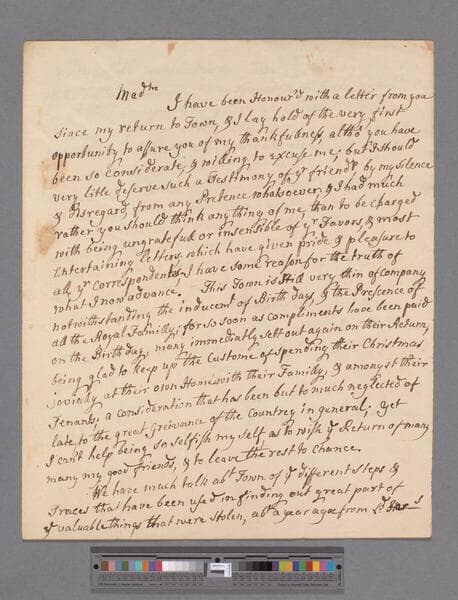 Madm
I have been Honour'd with a letter from you
since my return to Town, & I lay hold of the very first
opportunity to assure you of my thankfulness, altho' you have
been so Considerate, & willing to excuse me; but I should
very litle deserve such a Testimony of yr friendp by my silence
& Disregard, from any Pretence whatsoever; & I had much
rather you should think any thing of me, than to be charged
with being ungratefull or insensible of yr Favors, & most
Entertaining letters, which have given pride & pleasure to
all yr Correspondents, I have some reason for the truth of
what I now advance. This Town is still very thin of Company
notwithstanding the inducent of Birth days, & the Presence of
all the Royal Familly; for so soon as compliments have been paid
on the Birthday, many immediatly sett out again on their Return,
being glad to keep up the Custome of spending their Christmas
jovially at their own Homes with their Familly, & amongst their
Tenants; a consideration that has been but to much neglected of
late to the great Greivance of the Countrey in general. Yet
I can't help being so selfish my self, as to wish ye Return of many
many my good friends, & to leave the rest to Chance.
We have much talk abt Town of ye different steps &
Traces that have been used in finding out great part of
ye valuable things that were stolen, abt a year agoe from Ld